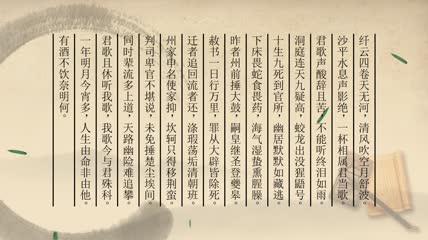 纤云四卷天无河，清风吹空月舒波。
沙平水息声影绝，一杯相属君当歌。
君歌声酸辞且苦，不能听终泪如雨。
洞庭连天九疑高，蛟龙出没猩鼯号。
十生九死到官所，幽居默默如藏逃。
下床畏蛇食畏药，海气湿蛰熏腥臊。
昨者州前捶大鼓，嗣皇继圣登夔皋。
赦书一日行万里，罪从大辟皆除死。
迁者追回流者还，涤瑕荡垢清朝班。
州家申名使家抑，坎轲只得移荆蛮。
判司卑官不堪说，未免捶楚尘埃间。
同时辈流多上道，天路幽险难追攀。
君歌且休听我歌，我歌今与君殊科。
一年明月今宵多，人生由命非由他。
有酒不饮奈明何。